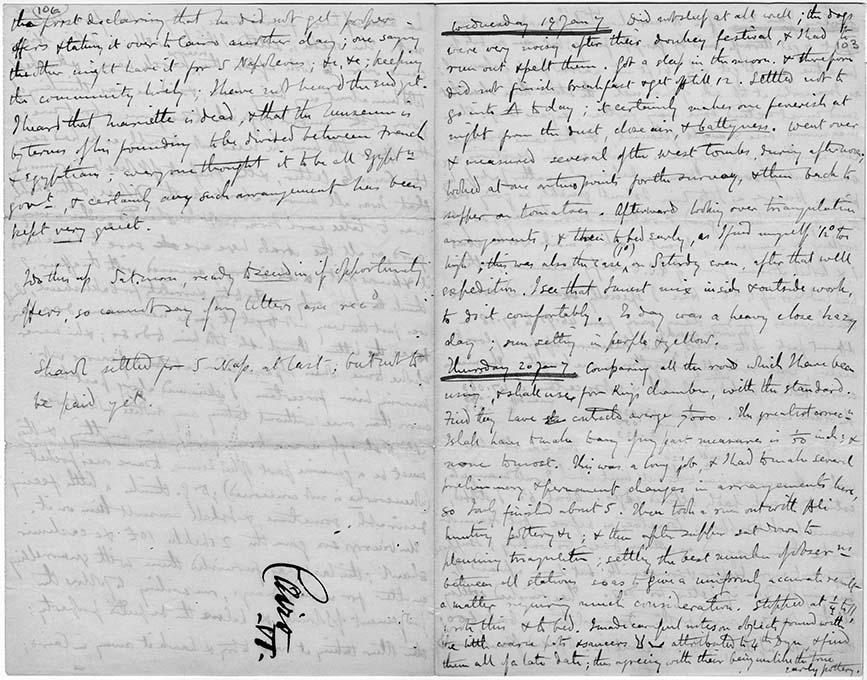 (106)
the first declaring that he did not get proper
offers & taking it over to Cairo another day; one saying
the other might have it for 5 Napoleons; &c, &c; keeping
the community lively. I have not heard the end yet.
I heard that Mariette is dead, & that the museum is
by terms of his founding to be divided between French
& Egyptian; everyone thought it to be all Egyptn
govt, & certainly any such arrangement has been
kept very quiet.
I do this up Sat. morn, ready to send in if opportunity
offers, so cannot say if any letters are recd
Shawl settled for 5 Nap. at last; but not to
be paid yet.
Cairo
VI.
103
Wednesday 19 Jany Did not sleep at all well; the dogs
were very noisy after their donkey festival, & I had to
run out & pelt them. Got a sleep in the morn. & therefore
did not finish breakfast & get off till 12. Settled not to
go into A to day; it certainly makes one feverish at
night from the dust, close air, & battyness. Went over
& measured several of the west tombs, during afternoon.
looked at one or two points for the survey, & then back to
supper on tomatoes. Afterward looking over triangulation
arrangements, & then to bed early, as I find myself ½° too
high; this was also the case (1°) on Saturday even, after that well
expedition. I see that I must mix inside & outside work,
to do it comfortably. To day was a heavy close hazy
day; sun setting in purple & yellow.
Thursday 20 Jany Comparing all the rods which I have been
using, & shall use for King's chamber, with the standard.
Find they have contracted average
The greatest correcn
I shall have to make to any of my past measures is 1/50 inch; &
none to most. This was a long job, & I had to make several
preliminary & permanent changes in arrangements here,
so I only finished about 5. Then took a run out with Ali
hunting pottery &c; & then after supper sat down to
planning triangulation; settling the best number of observns
between all stations so as to give a uniformly accurate result
a matter requiring much consideration. Stopped at
write this & to bed. I made careful notes on objects found with
the little coarse pots & saucers attributed to 4th Dyn. & find
them all of a late date; thus agreeing with their being unlike the true
early pottery.